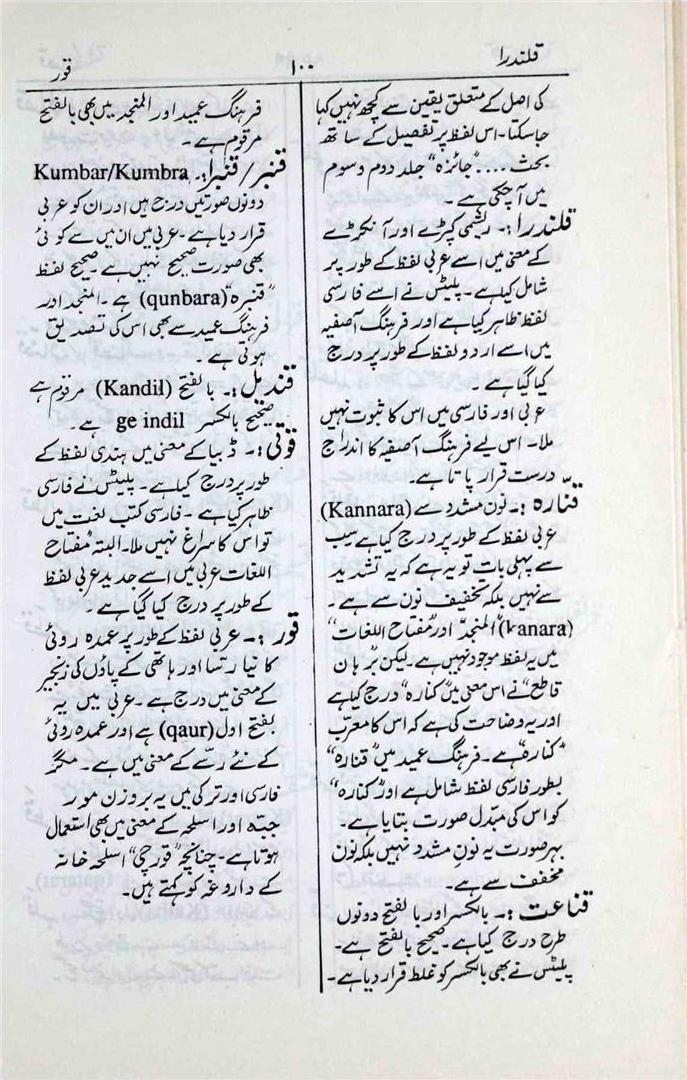 قلندرا
۱۰۰
قور
کی اصل کے متعلق یقین سے کچھ نہیں کہا
جاسکتا۔ اس لفظ پر تفصیل کے ساتھ
بحث.... "جائزہ" جلد دوم و سوم
میں آچکی ہے۔
قلندرا:۔ ریشمی کپڑے اور آنکڑے
کے معنی میں اسے عربی لفظ کے طور پر
شامل کیا ہے۔ پلیٹس نے اسے فارسی
لفظ ظاہر کیا ہے اور فرہنگ آصفیہ
میں اسے اردو لفظ کے طور پر درج
کیا گیا ہے۔
عربی اور فارسی میں اس کا ثبوت نہیں
ملا۔ اس لیے فرہنگ آصفیہ کا اندراج
درست قرار پاتا ہے۔
قنّارہ:۔ نون مشدد سے (Kannara)
عربی لفظ کے طور پر درج کیا ہے سب
سے پہلی بات تو یہ ہے کہ یہ تشدید
سے نہیں بلکہ تخفیف نون سے ہے۔
(kanara) "المنجد" اور "مفتاح اللغات"
میں یہ لفظ موجود نہیں ہے۔ لیکن برہان
قاطع نے اس معنی میں "کنارہ" درج کیا ہے
اور یہ وضاحت کی ہے کہ اس کا معرّب
"کنارہ" ہے۔ فرہنگ عمید میں "قنارہ"
بطور فارسی لفظ شامل ہے اور "کنارہ"
کو اس کی مبدّل صورت بتایا ہے۔
بہر صورت یہ نون مشدد نہیں بلکہ نون
مخفف سے ہے۔
قناعت:۔ بالکسر اور بالفتح دونوں
طرح درج کیا ہے۔ صحیح بالفتح ہے۔
پلیٹس نے بھی بالکسر کو غلط قرار دیا ہے۔
فرہنگ عمید اور المنجد میں بھی بالفتح
مرقوم ہے۔
قنبر/قنبرا:۔ Kumbar/Kumbra
دونوں صورتیں درج ہیں اور ان کو عربی
قرار دیا ہے۔ عربی میں ان میں سے کوئی
بھی صورت صحیح نہیں ہے۔ صحیح لفظ
"قنبرہ" (qunbara) ہے۔ المنجد اور
فرہنگ عمید سے بھی اس کی تصدیق
ہوتی ہے۔
قندیل:۔ بالفتح (Kandil) مرقوم ہے
صحیح بالکسر ge indil ہے۔
قوتی:۔ ڈبیا کے معنی میں ہندی لفظ کے
طور پر درج کیا ہے۔ پلیٹس نے فارسی
ظاہر کیا ہے۔ فارسی کتب لغت میں
تو اس کا سراغ نہیں ملا۔ البتہ "مفتاح
اللغات عربی میں اسے جدید عربی لفظ
کے طور پر درج کیا گیا ہے۔
قور:۔ عربی لفظ کے طور پر عمدہ روئی
کا نیا رسّا اور ہاتھی کے پاؤں کی زنجیر
کے معنی میں درج ہے۔ عربی میں یہ
بفتح اول (qaur) ہے اور عمدہ روئی
کے نئے رسّے کے معنی میں ہے۔ مگر
فارسی اور ترکی میں یہ بروزن مور
جبّہ اور اسلحہ کے معنی میں بھی استعمال
ہوتا ہے۔ چنانچہ "قورچی" اسلحہ خانہ
کے داروغہ کو کہتے ہیں۔